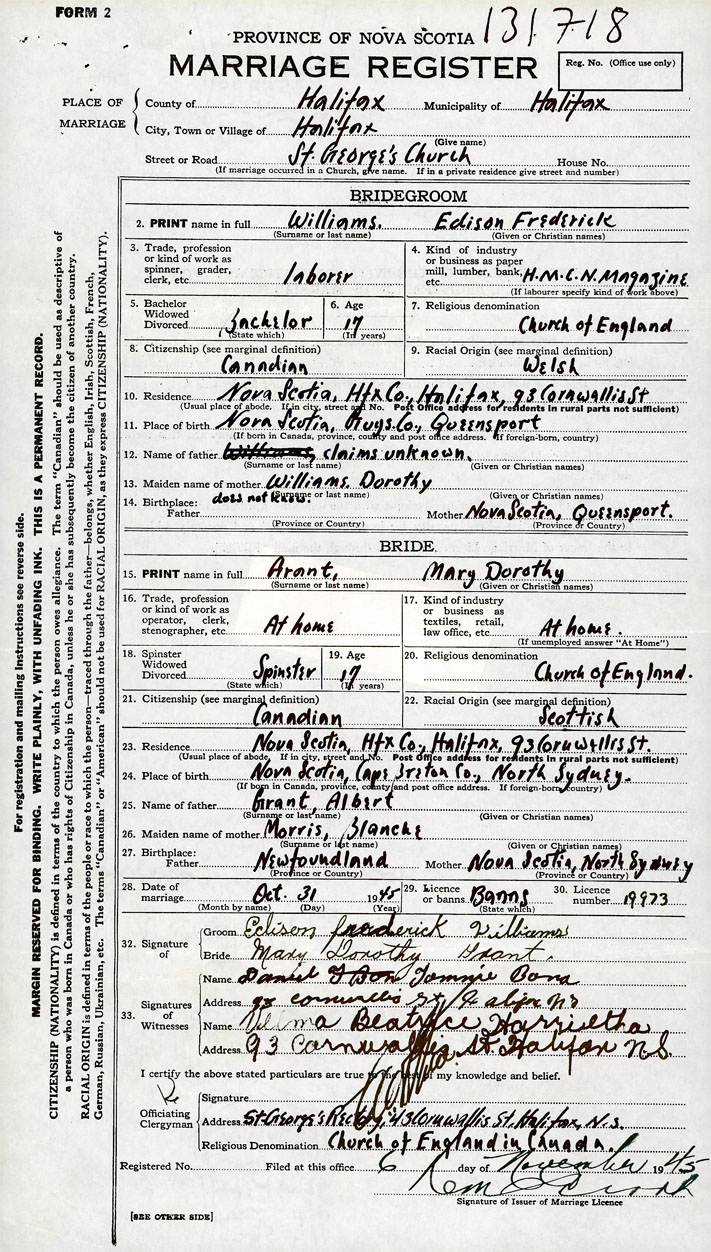 FORM 2
131718
PROVINCE OF NOVA SCOTIA
MARRIAGE REGISTER
Reg. No. (Office use only)
PLACE OF MARRIAGE
County of Halifax Municipality of Halifax
City, Town or Village of Halifax
(Give name)
Street or Road St. George's Church House No.
(If marriage occurred in a Church, give name. If in a private residence give street and number)
BRIDEGROOM
2. PRINT name in full Williams. Edison Frederick
(Surname or last name) (Given or Christian names)
3. Trade, profession or kind of work as spinner, grader, clerk, etc laborer
4. Kind of industry or business as paper mill, lumber, bank, etc. H.M.C.N. Magazine
(If labourer specify kind of work above)
5. Bachelor Widowed Divorced Bachelor (State which)
6. Age 17 (In years)
7. Religious denomination Church of England
8. Citizenship (see marginal definition) Canadian
9. Racial Origin (see marginal definition) Welsh
10. Residence Nova Scotia, Hfx Co., Halifax, 93 Cornwallis St
(Usual place of abode. If in city, street and No. Post Office address for residents in rural parts not sufficient)
11. Place of birth Nova Scotia, Guys. Co., Queensport
(If born in Canada, province, county and post office address. If foreign-born, country)
12. Name of father Williams, claims unknown.
(Surname or last name) (Given or Christian names)
13. Maiden name of mother Williams Dorothy
(Surname or last name) (Given or Christian names)
14. Birthplace: Father does not know. Mother Nova Scotia, Queensport.
(Province or Country) (Province or Country)
BRIDE
15. PRINT name in full Grant, Mary Dorothy
(Surname or last name) (Given or Christian names)
16. Trade, profession or kind of work as operator, clerk, stenographer, etc. At home
17. Kind of industry or business as textiles, retail, law office, etc At home.
(If unemployed answer "At Home")
18. Spinster Widowed Divorced Spinster (State which)
19. Age 17 (In years)
20. Religious denomination Church of England.
21. Citizenship (see marginal definition) Canadian
22. Racial Origin (see marginal definition) Scottish
23. Residence Nova Scotia, Hfx Co., Halifax, 93 Cornwallis St.
(Usual place of abode. If in city, street and No. Post Office address for residents in rural parts not sufficient)
24. Place of birth Nova Scotia, Cape Breton Co., North Sydney.
(If born in Canada, province, county and post office address. If foreign-born, country)
25. Name of father Grant, Albert
(Surname or last name) (Given or Christian names)
26. Maiden name of mother Morris, Blanche
(Surname or last name) (Given or Christian names)
27. Birthplace: Father Newfoundland Mother Nova Scotia, North Sydney
(Province or Country) (Province or Country)
28. Date of marriage Oct. 31 1945
(Month by name) (Day) (Year)
29. Licence or banns. Banns (State which)
30. Licence number 19973
32. Signature of
Groom Edison frederick Williams
Bride Mary Dorothy Grant.
33. Signatures of Witnesses
Name Tommie Bona
Address cornwallis st
Name Velma Beatrice
Address 93 Cornwallis St Halifax N.S.
I certify the above stated particulars are true to the best of my knowledge and belief.
Officiating Clergyman
Signature
Address St. George's Rectory, 43 Cornwallis St. Halifax, N.S.
Religious Denomination Church of England in Canada.
Registered No. Filed at this office 6 day of November 1945
Signature of Issuer of Marriage Licence
[SEE OTHER SIDE]
For registration and mailing instructions see reverse side.
MARGIN RESERVED FOR BINDING. WRITE PLAINLY, WITH UNFADING INK. THIS IS A PERMANENT RECORD.
CITIZENSHIP (NATIONALITY) is defined in terms of the country to which the person owes allegiance. The term "Canadian" should be used as descriptive of
a person who was born in Canada or who has rights of Citizenship in Canada, unless he or she has subsequently become the citizen of another country.
RACIAL ORIGIN is defined in terms of the people or race to which the person—traced through the father—belongs, whether English, Irish, Scottish, French,
German, Russian, Ukrainian, etc. The terms "Canadian" or "American" should not be used for RACIAL ORIGIN, as they express CITIZENSHIP (NATIONALITY).